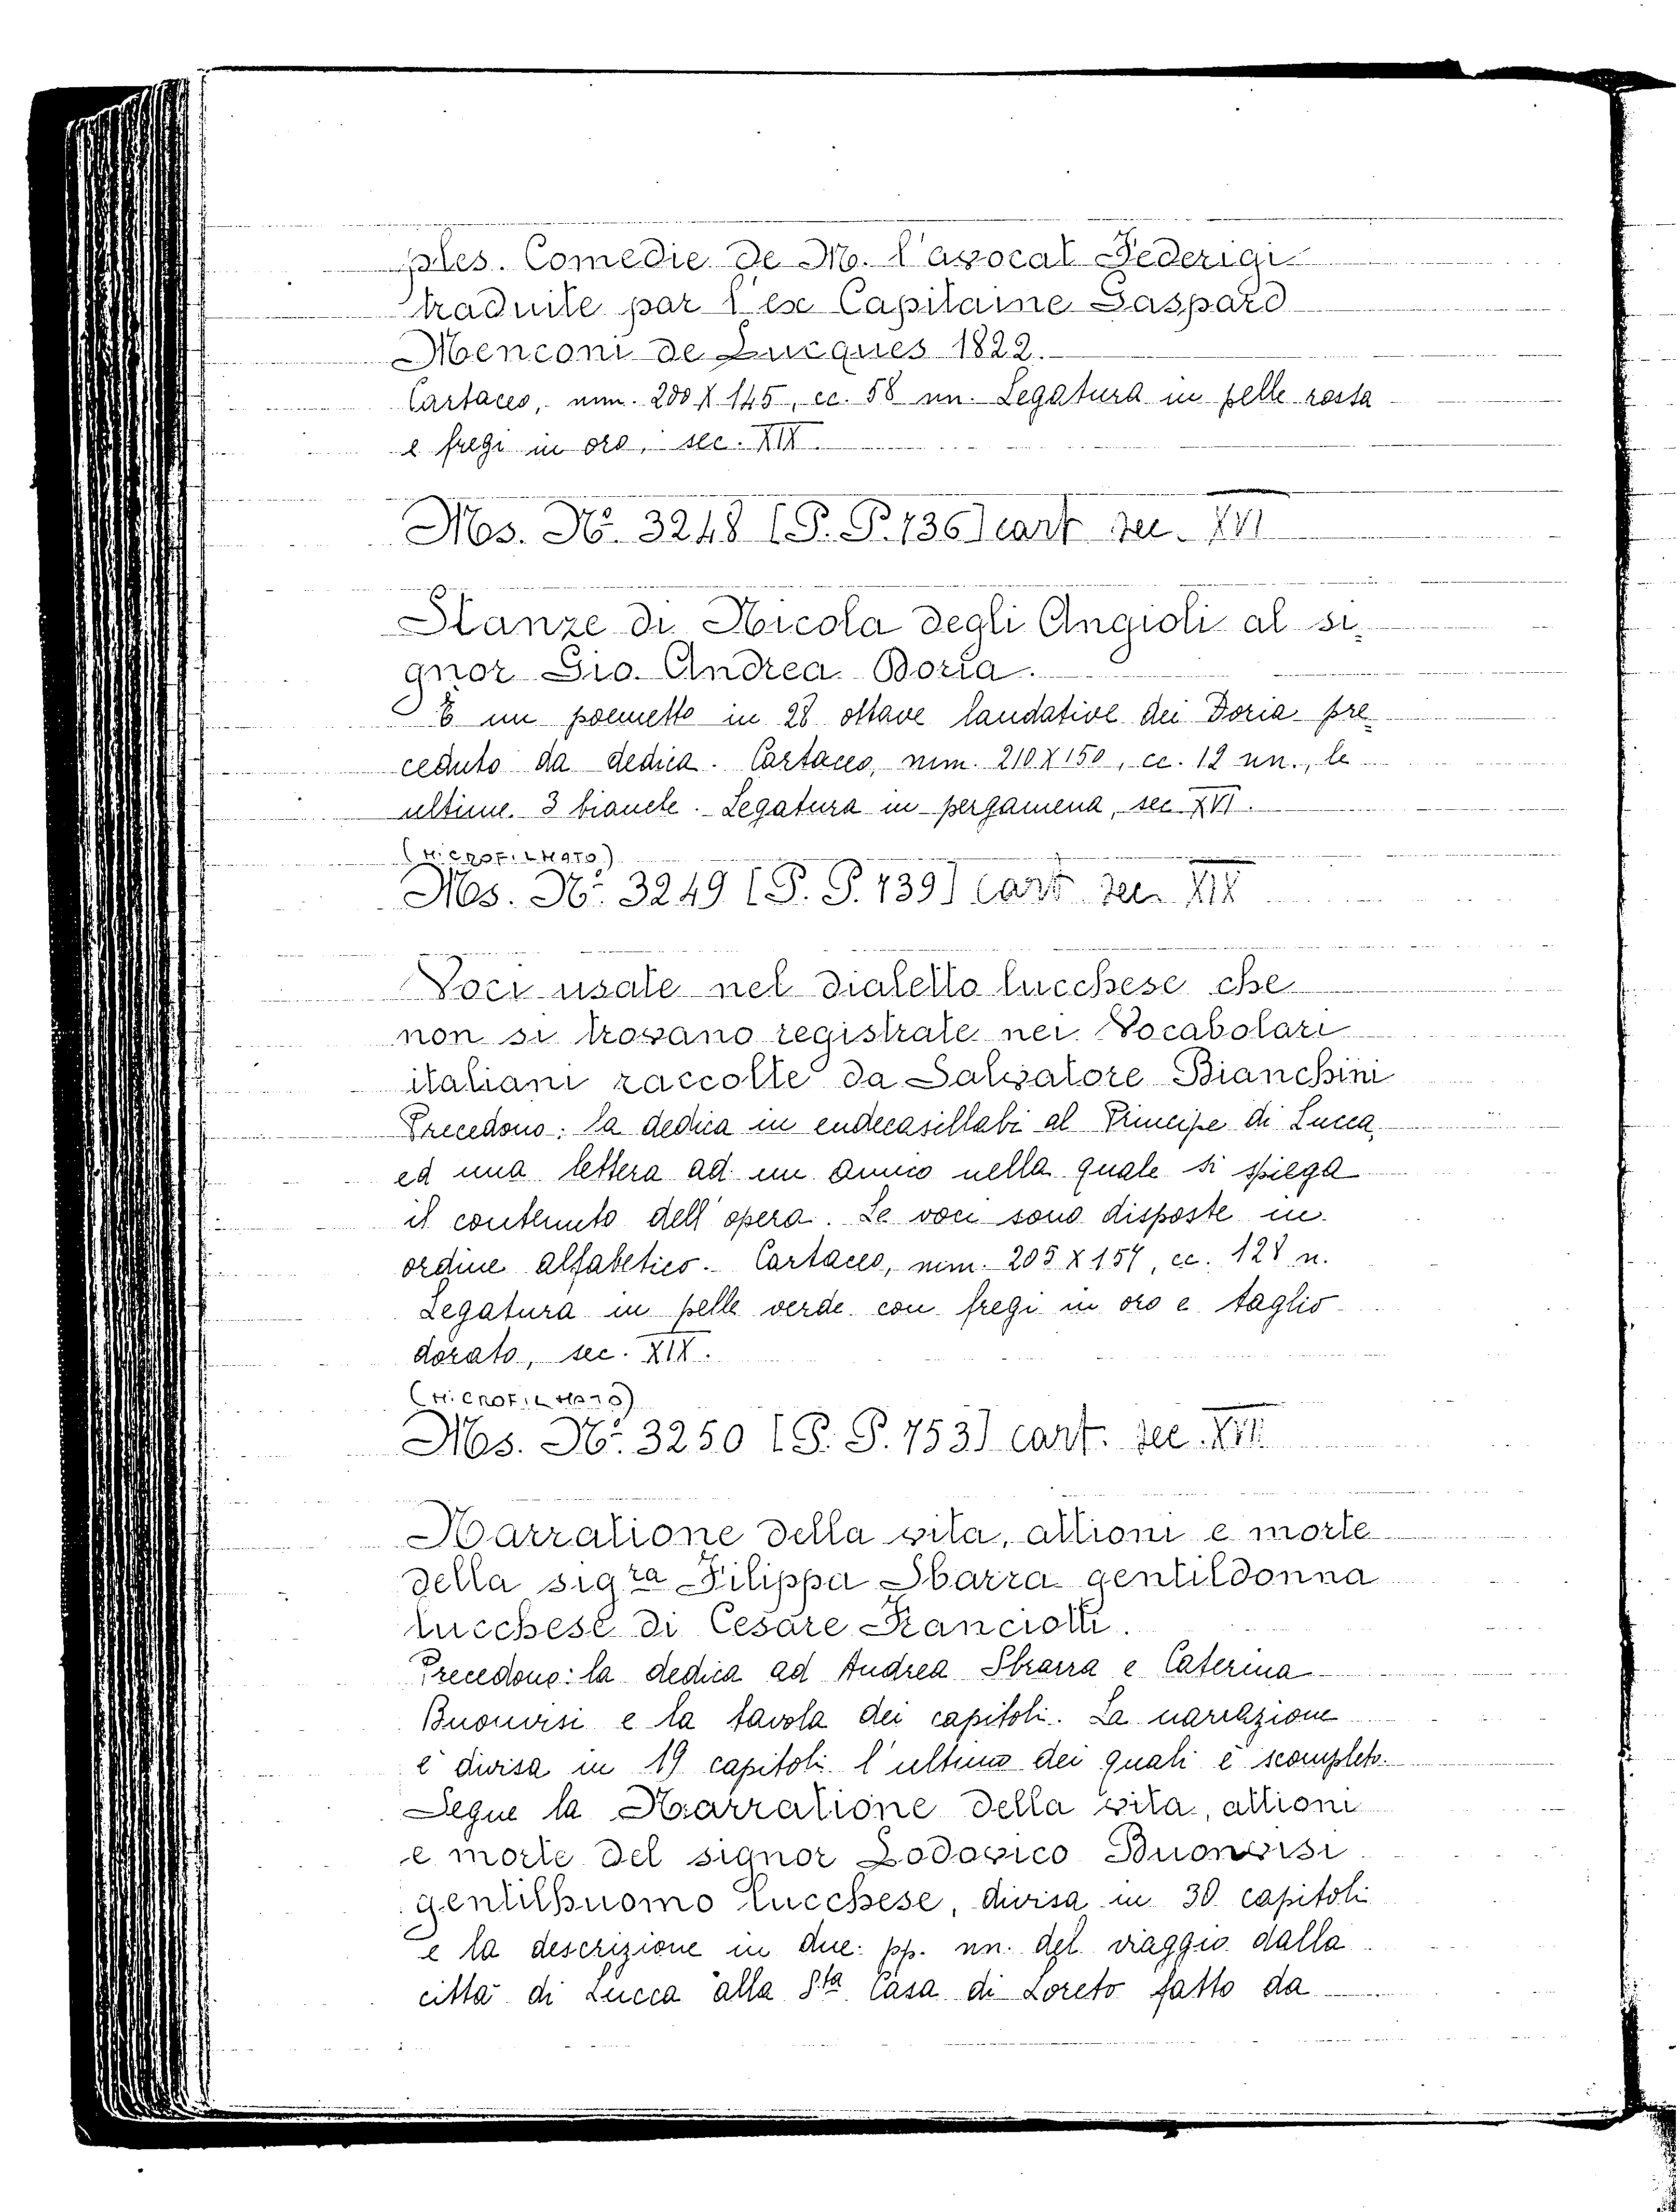 ples. Comedie de M. l'avocat Federigi
traduite par l'ex Capitaine Gaspard
Menconi de Lucques 1822.
Cartaceo, mm. 200 X 145, cc. 58 nn. Legatura in pelle rossa
e fregi in oro, sec. XIX.
Ms. N°. 3248 [P. P. 736] cart sec. XVI
Stanze di Nicola degli Angioli al si-
gnor Gio. Andrea Doria.
È un poemetto in 28 ottave laudative dei Doria pre-
ceduto da dedica. Cartaceo, mm. 210 X 150, cc. 12 nn., le
ultime 3 bianche. Legatura in pergamena, sec XVI.
(MICROFILMATO)
Ms. N°. 3249 [P. P. 739] cart sec. XIX
Voci usate nel dialetto lucchese che
non si trovano registrate nei Vocabolari
italiani raccolte da Salvatore Bianchini
Precedono: la dedica in endecasillabi al Principe di Lucca,
ed una lettera ad un amico nella quale si spiega
il contenuto dell'opera. Le voci sono disposte in
ordine alfabetico. Cartaceo, mm. 205 X 157, cc. 128 n.
Legatura in pelle verde con fregi in oro e taglio
dorato, sec. XIX.
(MICROFILMATO)
Ms. N°. 3250 [P. P. 753] cart. sec. XVII
Narratione della vita, attioni e morte
della sigra Filippa Sbarra gentildonna
lucchese di Cesare Franciotti.
Precedono: la dedica ad Andrea Sbarra e Caterina
Buonvisi e la tavola dei capitoli. La narrazione
è divisa in 19 capitoli l'ultimo dei quali è scompleto.
Segue la Narratione della vita, attioni
e morte del signor Lodovico Buonvisi
gentilhuomo lucchese, divisa in 30 capitoli
e la descrizione in due pp. nn. del viaggio dalla
città di Lucca alla Sta Casa di Loreto fatto da